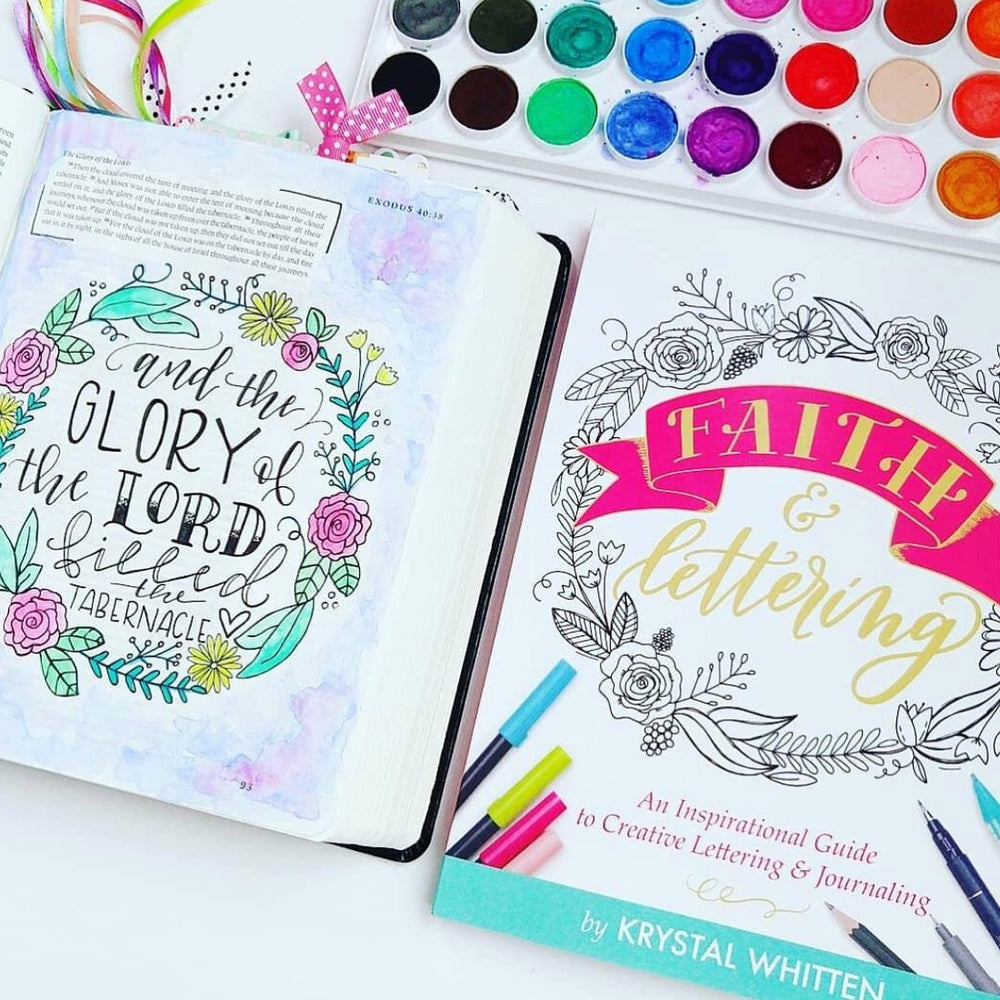 The Glory of the LORD
34 Then the cloud covered the tent of meeting, and the glory of the LORD filled the
tabernacle. 35 And Moses was not able to enter the tent of meeting because the cloud
settled on it, and the glory of the LORD filled the tabernacle. 36 Throughout all their
journeys, whenever the cloud was taken up from over the tabernacle, the people of Israel
would set out. 37 But if the cloud was not taken up, then they did not set out till the day
that it was taken up. 38 For the cloud of the LORD was on the tabernacle by day, and fire
was in it by night, in the sight of all the house of Israel throughout all their journeys.
EXODUS 40:38
and the
GLORY of
the LORD
filled
the
TABERNACLE
93
FAITH
&
lettering
An Inspirational Guide
to Creative Lettering & Journaling
by KRYSTAL WHITTEN